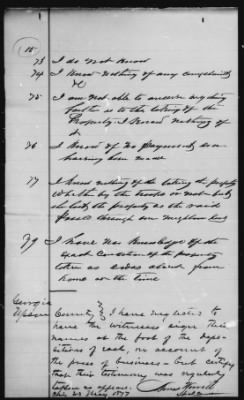 15
73 I do not Know
74 I Know nothing of any complaints
&c
75 I am not able to answer anything
further as to the taking of the
Property. I Know nothing of
it
76 I Know of no payments ever
having been made
77 I Know nothing of the taking the property
whether by the troops or not but
the property as the raid
passed through our neighborhood
79 I have no Knowledge of the
exact Condition of the property
taken as I was absent from
home at the time
Georgia
Upson County I have neglected to
have the witnesses sign their
names at the foot of the depo-
sitions of each, on account of
the press of business - but certify
that their testimony was regularly
taken as appears.
this 23 May 1877